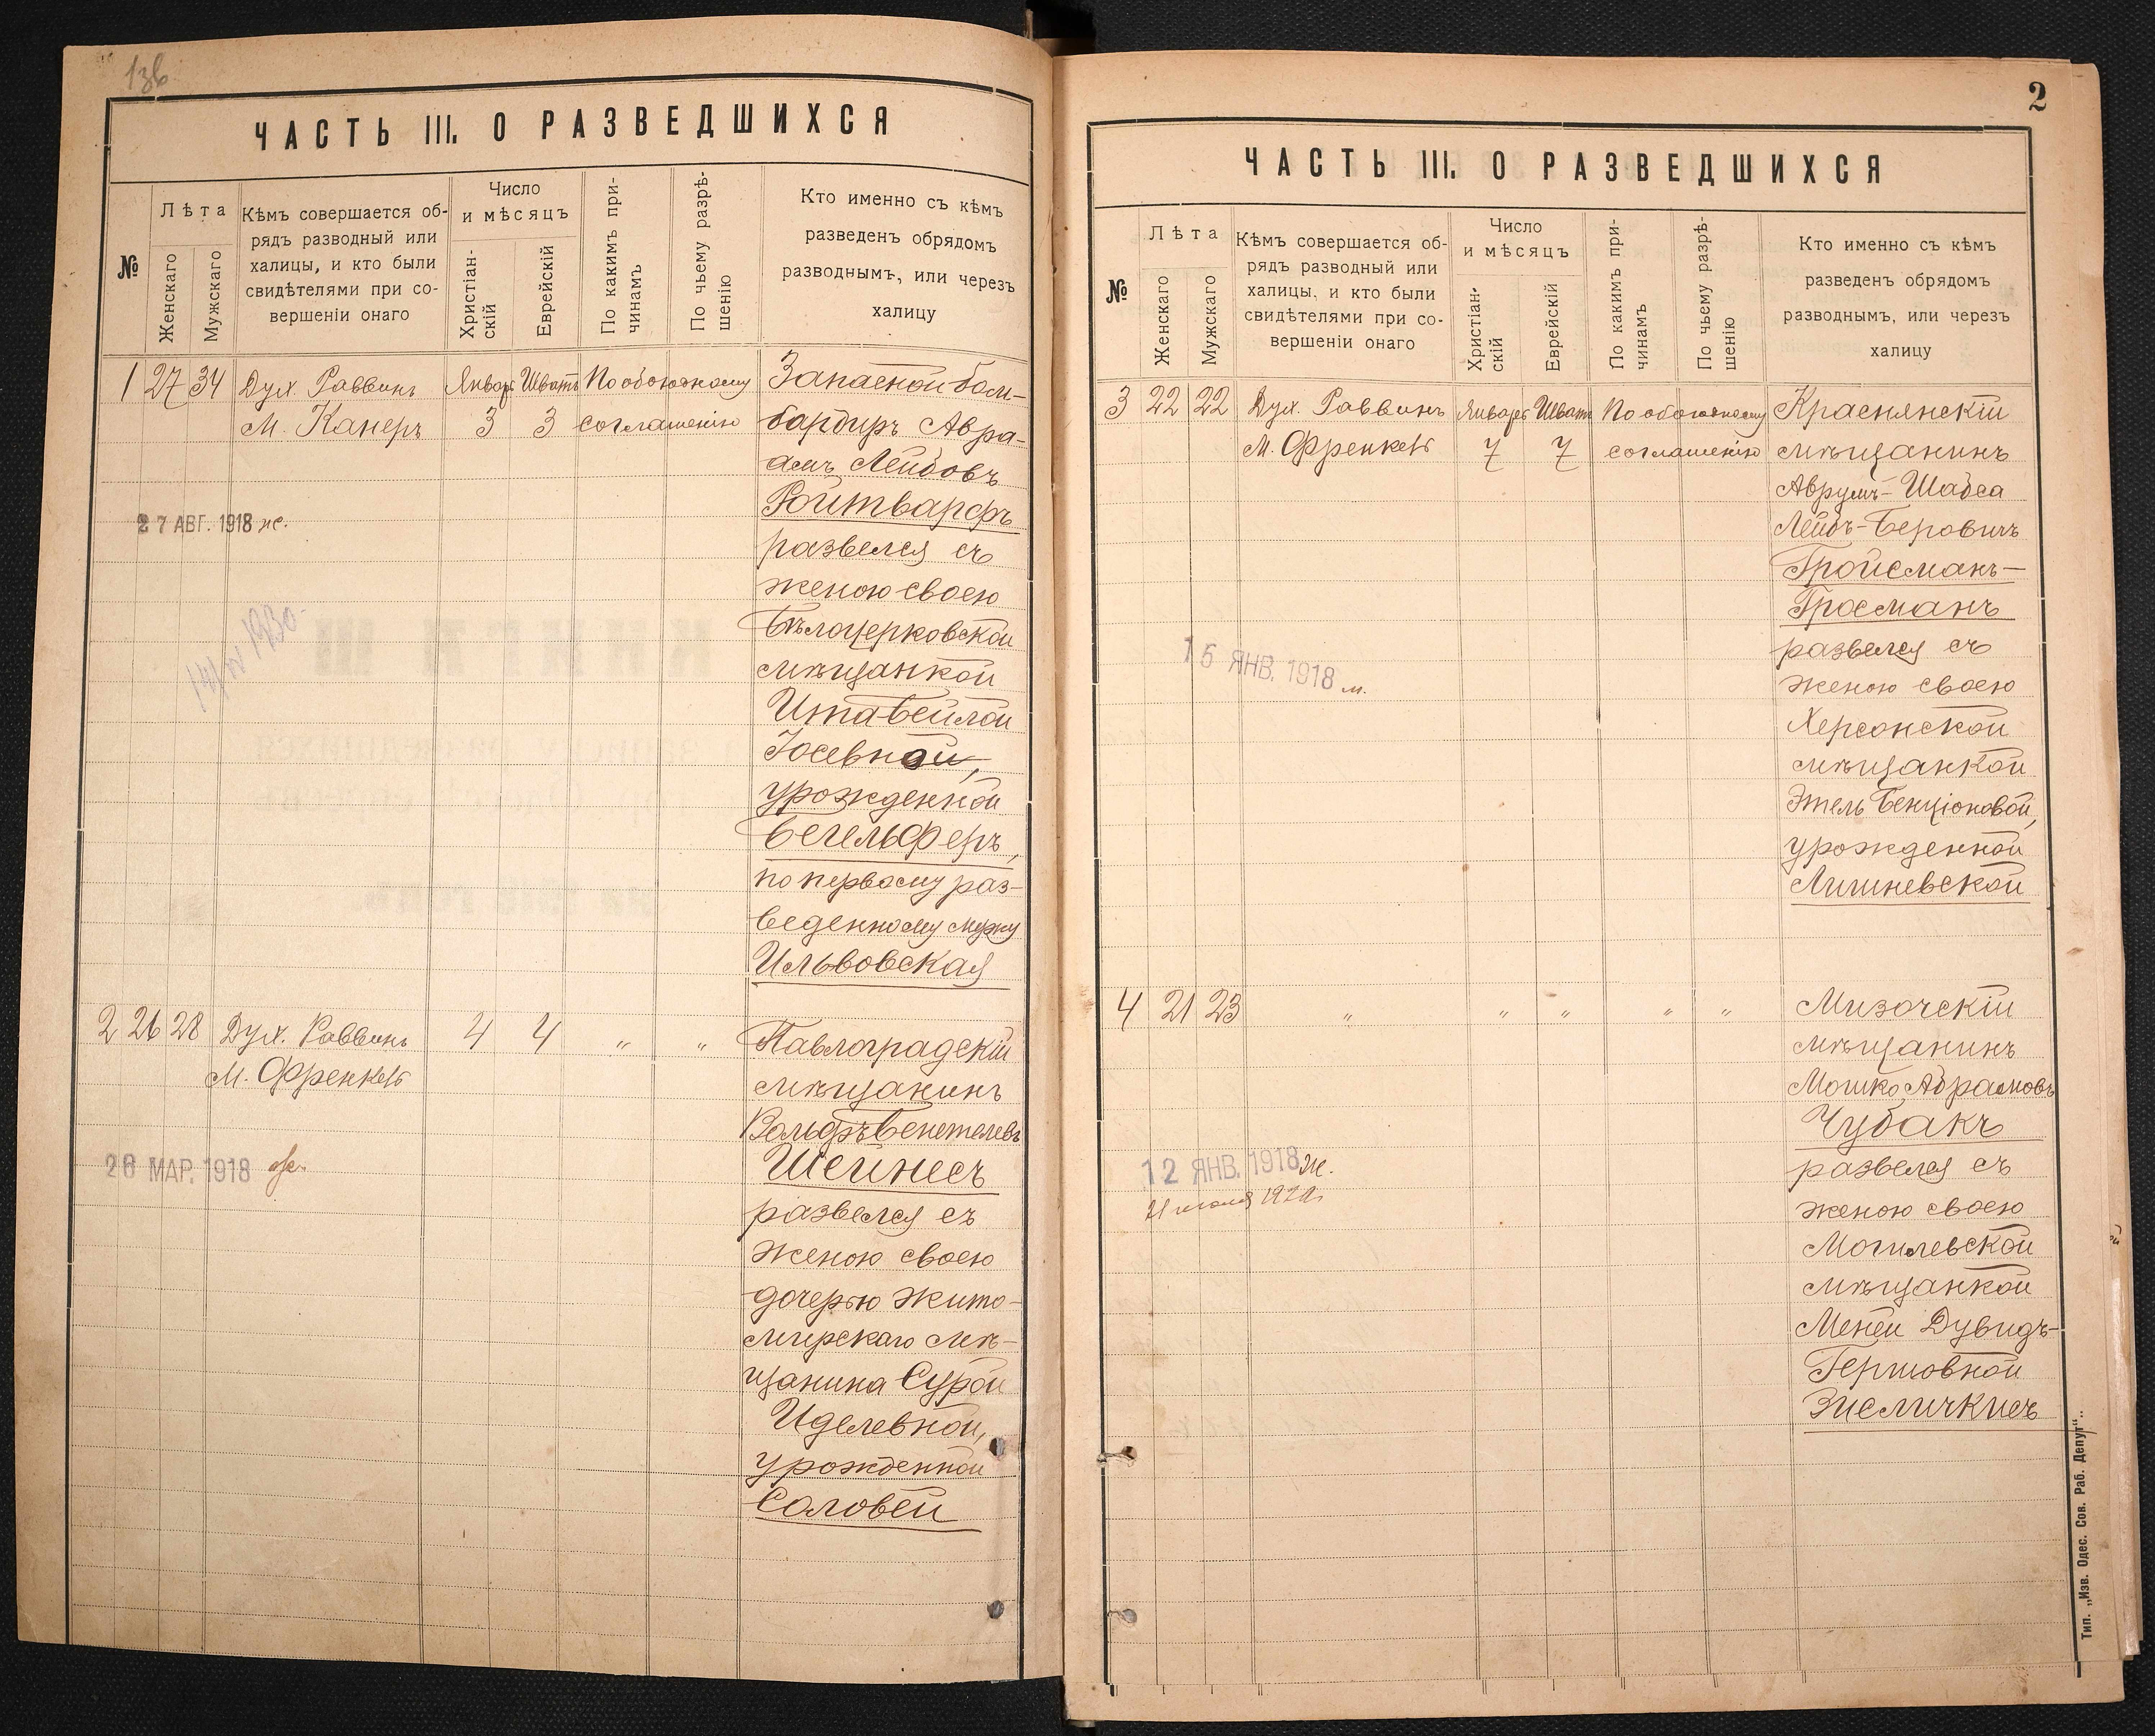 ЧАСТЬ III. О РАЗВЕДШИХСЯ
№
Лѣта
Женскаго
Мужскаго
Кѣмъ совершается об-
рядъ разводный или
халицы, и кто были
свидѣтелями при со-
вершеніи онаго
Число
и мѣсяцъ
Христіан-
скій
Еврейскій
По какимъ при-
чинамъ
По чьему разрѣ-
шенію
Кто именно съ кѣмъ
разведенъ обрядомъ
разводнымъ, или черезъ
халицу
1 27 34 Дух. Раввинъ Январь Шватъ По обоюдному Запасной бом-
М. Канеръ 3 3 соглашенію бардиръ Авра-
амъ Лейбовъ
Ройтварфъ
27 АВГ. 1918 ж.
развелся съ
женою своею
Бѣлоцерковской
мѣщанкой
Ита-Бейлой
Іосевной,
урожденной
Бегельферъ,
по первому раз-
веденному мужу
Ильвовская
2 26 28 Дух. Раввинъ 4 4 „ „ Павлоградскій
М. Френкель мѣщанинъ
Вольфъ
Шейнесъ
26 МАР. 1918
развелся съ
женою своею
дочерью Жито-
мирскаго мѣ-
щанина Сурой
Иделевной,
урожденной
Соловей
2
ЧАСТЬ III. О РАЗВЕДШИХСЯ
№
Лѣта
Женскаго
Мужскаго
Кѣмъ совершается об-
рядъ разводный или
халицы, и кто были
свидѣтелями при со-
вершеніи онаго
Число
и мѣсяцъ
Христіан-
скій
Еврейскій
По какимъ при-
чинамъ
По чьему разрѣ-
шенію
Кто именно съ кѣмъ
разведенъ обрядомъ
разводнымъ, или черезъ
халицу
3 22 22 Дух. Раввинъ Январь Шватъ По обоюдному Краснянскій
М. Френкель 7 7 соглашенію мѣщанинъ
Аврумъ-Шабса
Лейбъ-Беровичъ
Гройсманъ-
Гросманъ
развелся съ
15 ЯНВ. 1918 м.
женою своею
Херсонской
мѣщанкой
Этель Бенціоновой,
урожденной
Личиневской
4 21 23 „ „ „ „ „ Мизочскій
мѣщанинъ
Мошко Абрамовъ
Чубакъ
12 ЯНВ. 1918 ж.
развелся съ
женою своею
Могилевской
мѣщанкой
Меней Дувидъ-
Гершовной
Зисличкисъ
Тип. „Изв. Одес. Сов. Раб. Депут“.